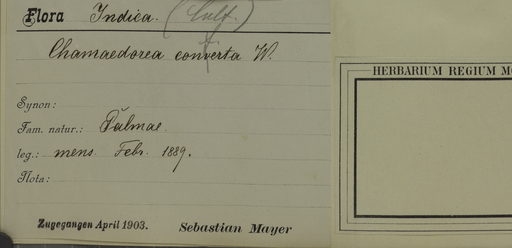 Flora Indica. (Cult.)
Chamaedorea converta W.
Synon:
Fam. natur.: Palmae
leg.: mens Febr. 1889.
Nota:
Zugegangen April 1903. Sebastian Mayer
HERBARIUM REGIUM MO